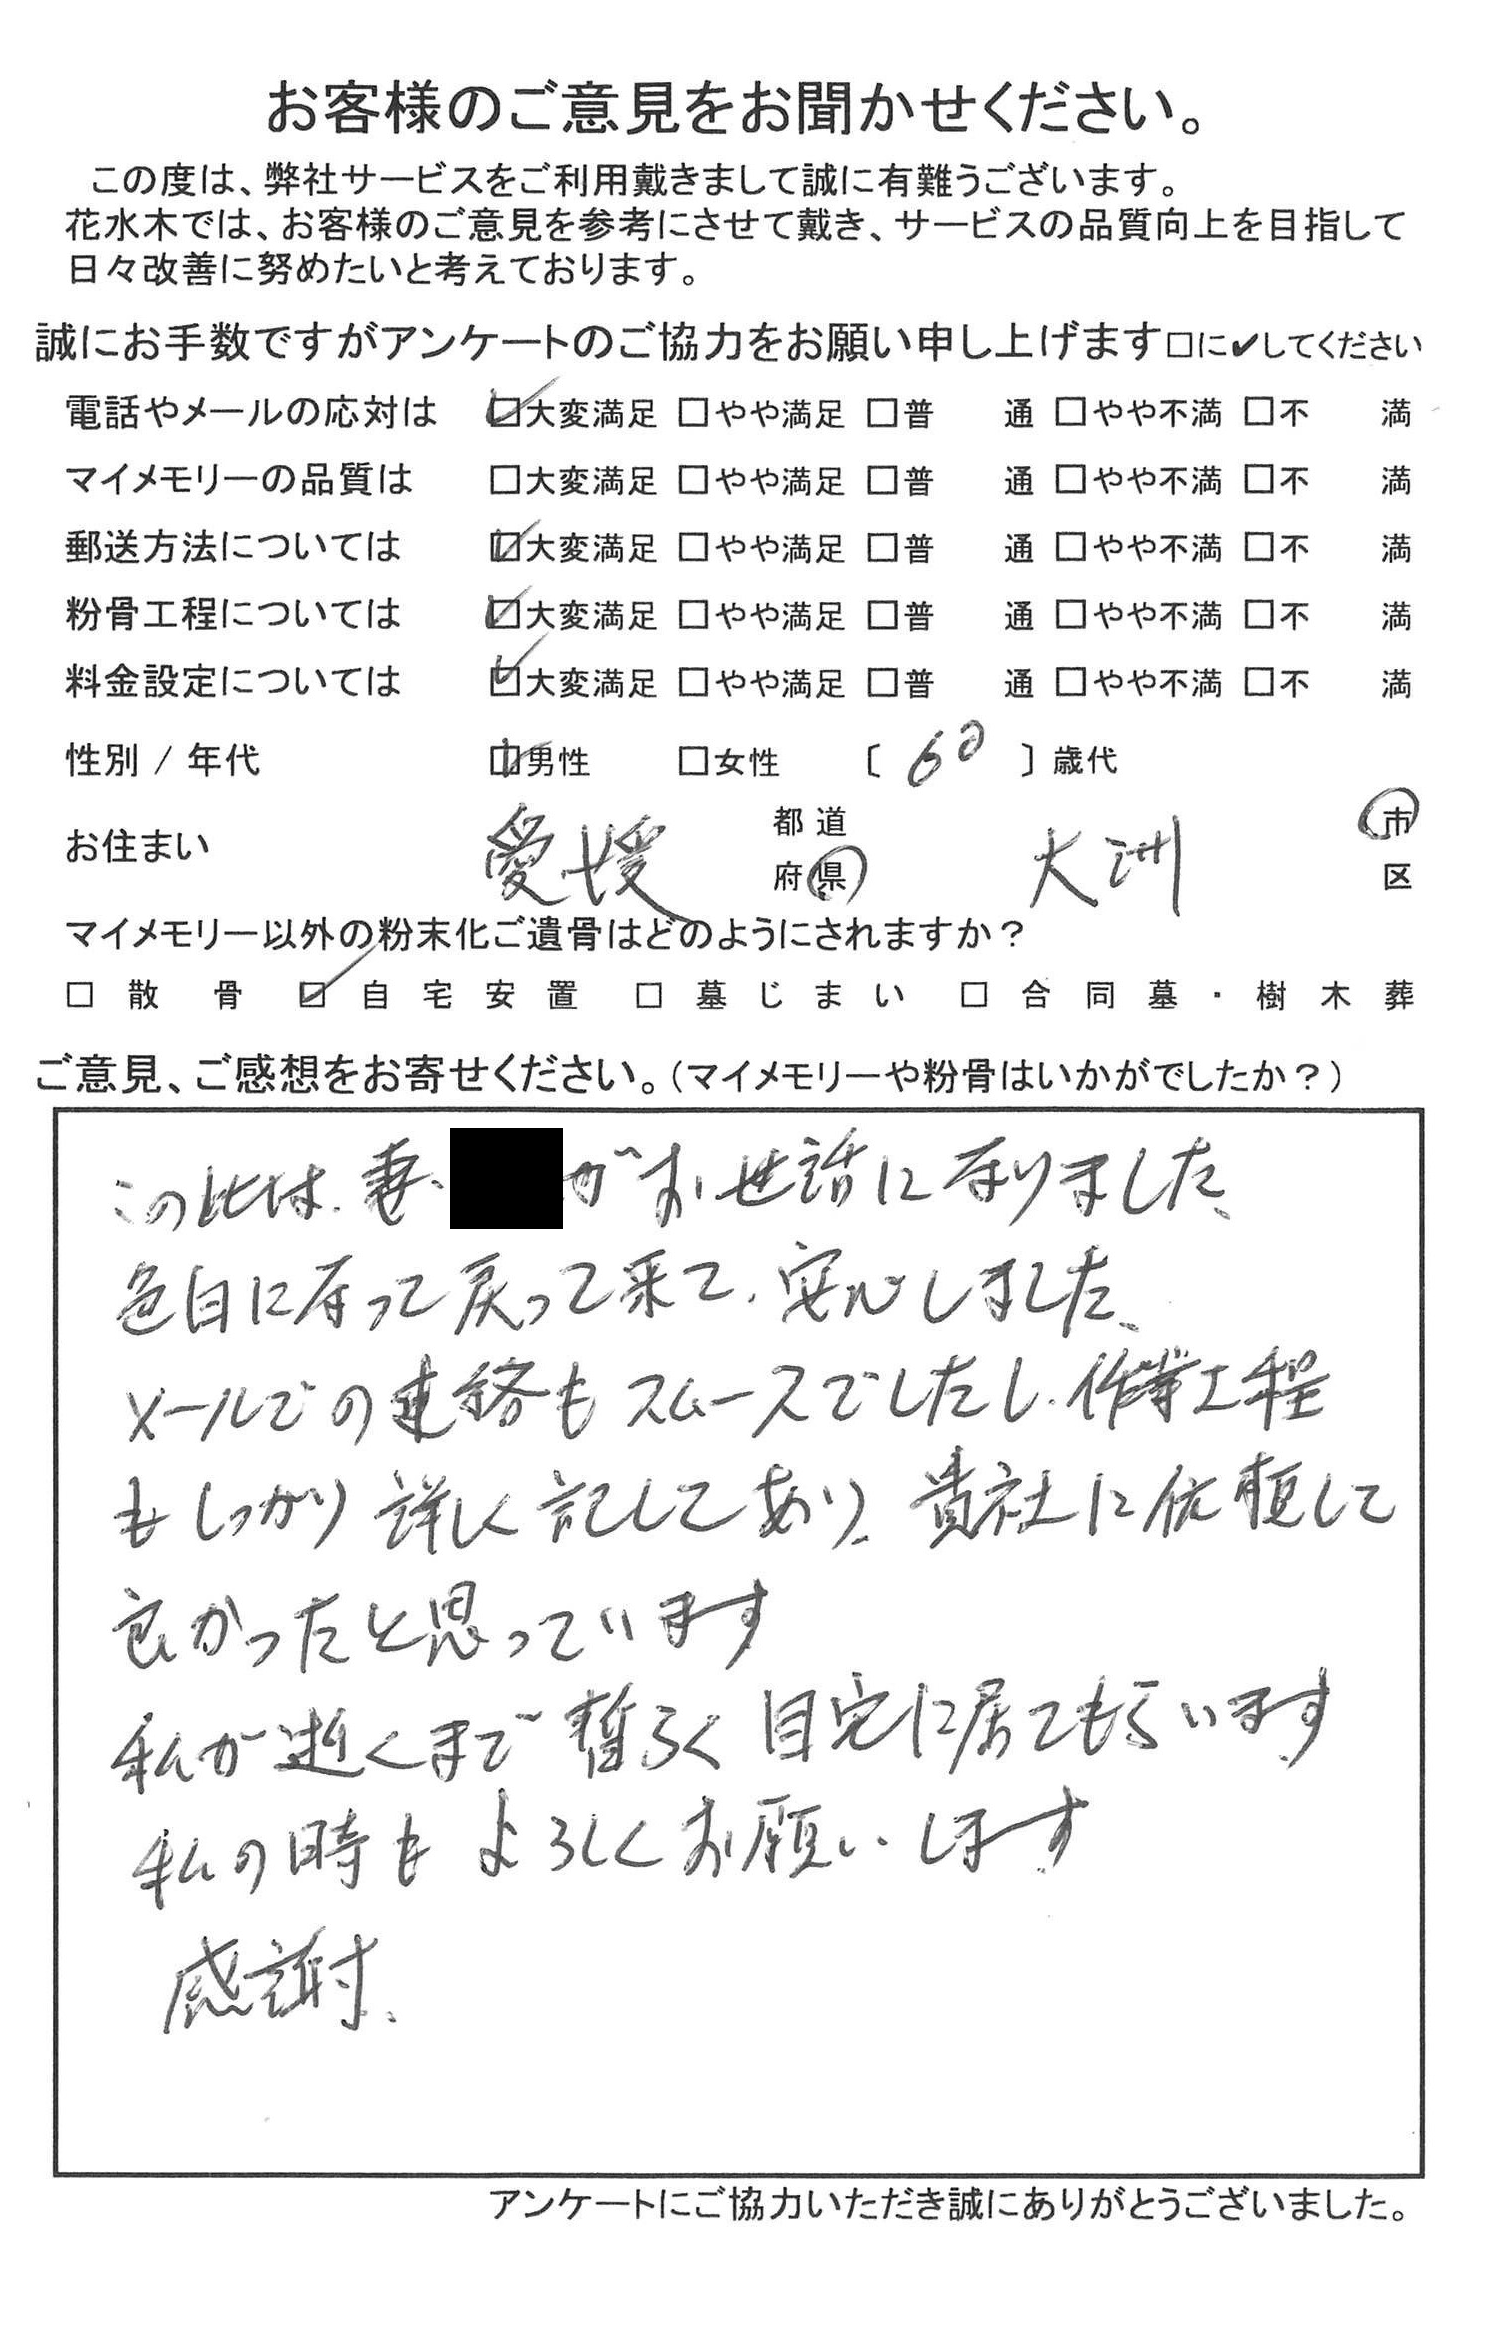 お客様のご意見をお聞かせください。
この度は、弊社サービスをご利用戴きまして誠に有難うございます。
花水木では、お客様のご意見を参考にさせて戴き、サービスの品質向上を目指して
日々改善に努めたいと考えております。
誠にお手数ですがアンケートのご協力をお願い申し上げます□に✔してください
電話やメールの応対は ☑大変満足 □やや満足 □普 通 □やや不満 □不 満
マイメモリーの品質は □大変満足 □やや満足 □普 通 □やや不満 □不 満
郵送方法については ☑大変満足 □やや満足 □普 通 □やや不満 □不 満
粉骨工程については ☑大変満足 □やや満足 □普 通 □やや不満 □不 満
料金設定については ☑大変満足 □やや満足 □普 通 □やや不満 □不 満
性別 / 年代 ☑男性 □女性 〔 60 〕歳代
お住まい 愛媛 都道府県 大洲 市区
マイメモリー以外の粉末化ご遺骨はどのようにされますか？
□散骨 ☑自宅安置 □墓じまい □合同墓・樹木葬
ご意見、ご感想をお寄せください。（マイメモリーや粉骨はいかがでしたか？）
この比は、妻、がお世話になりました、
色白になって戻って来て、安心しました、
メールでの連絡もスムースでしたし、作業工程
もしっかり詳しく記してあり、貴社に依頼して
良かったと思っています
私が逝くまで暫らく自宅に居てもらいます
私の時もよろしくお願いします
感謝、
アンケートにご協力いただき誠にありがとうございました。